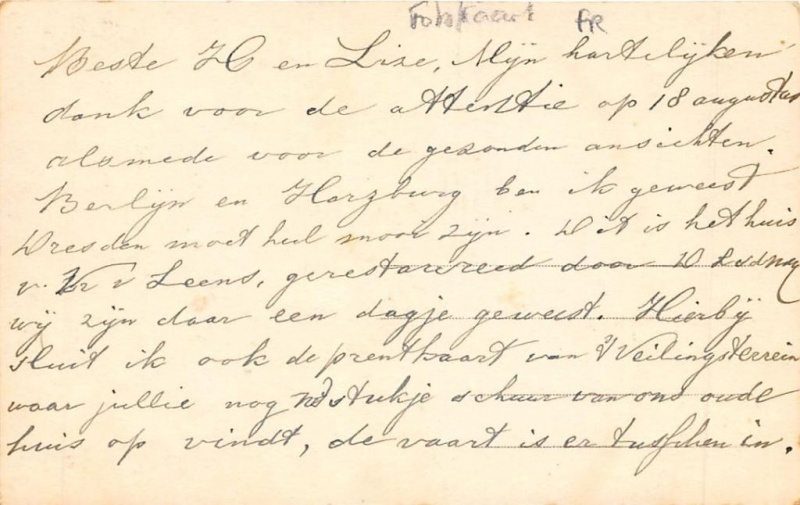 Fotokaart FR
Beste H en Lize, Mijn hartelijken
dank voor de attentie op 18 augustus
alsmede voor de gezonden ansichten.
Berlijn en Harzburg ben ik geweest
Dresden moet heel mooi zijn. Dit is het huis
v. Leens, gerestaureed door D
wij zijn daar een dagje geweest. Hierbij
sluit ik ook de prentkaart van 't Veilingsterrein
waar jullie nog stukje schuur van ons oude
huis op vindt, de vaart is er tusschen in.